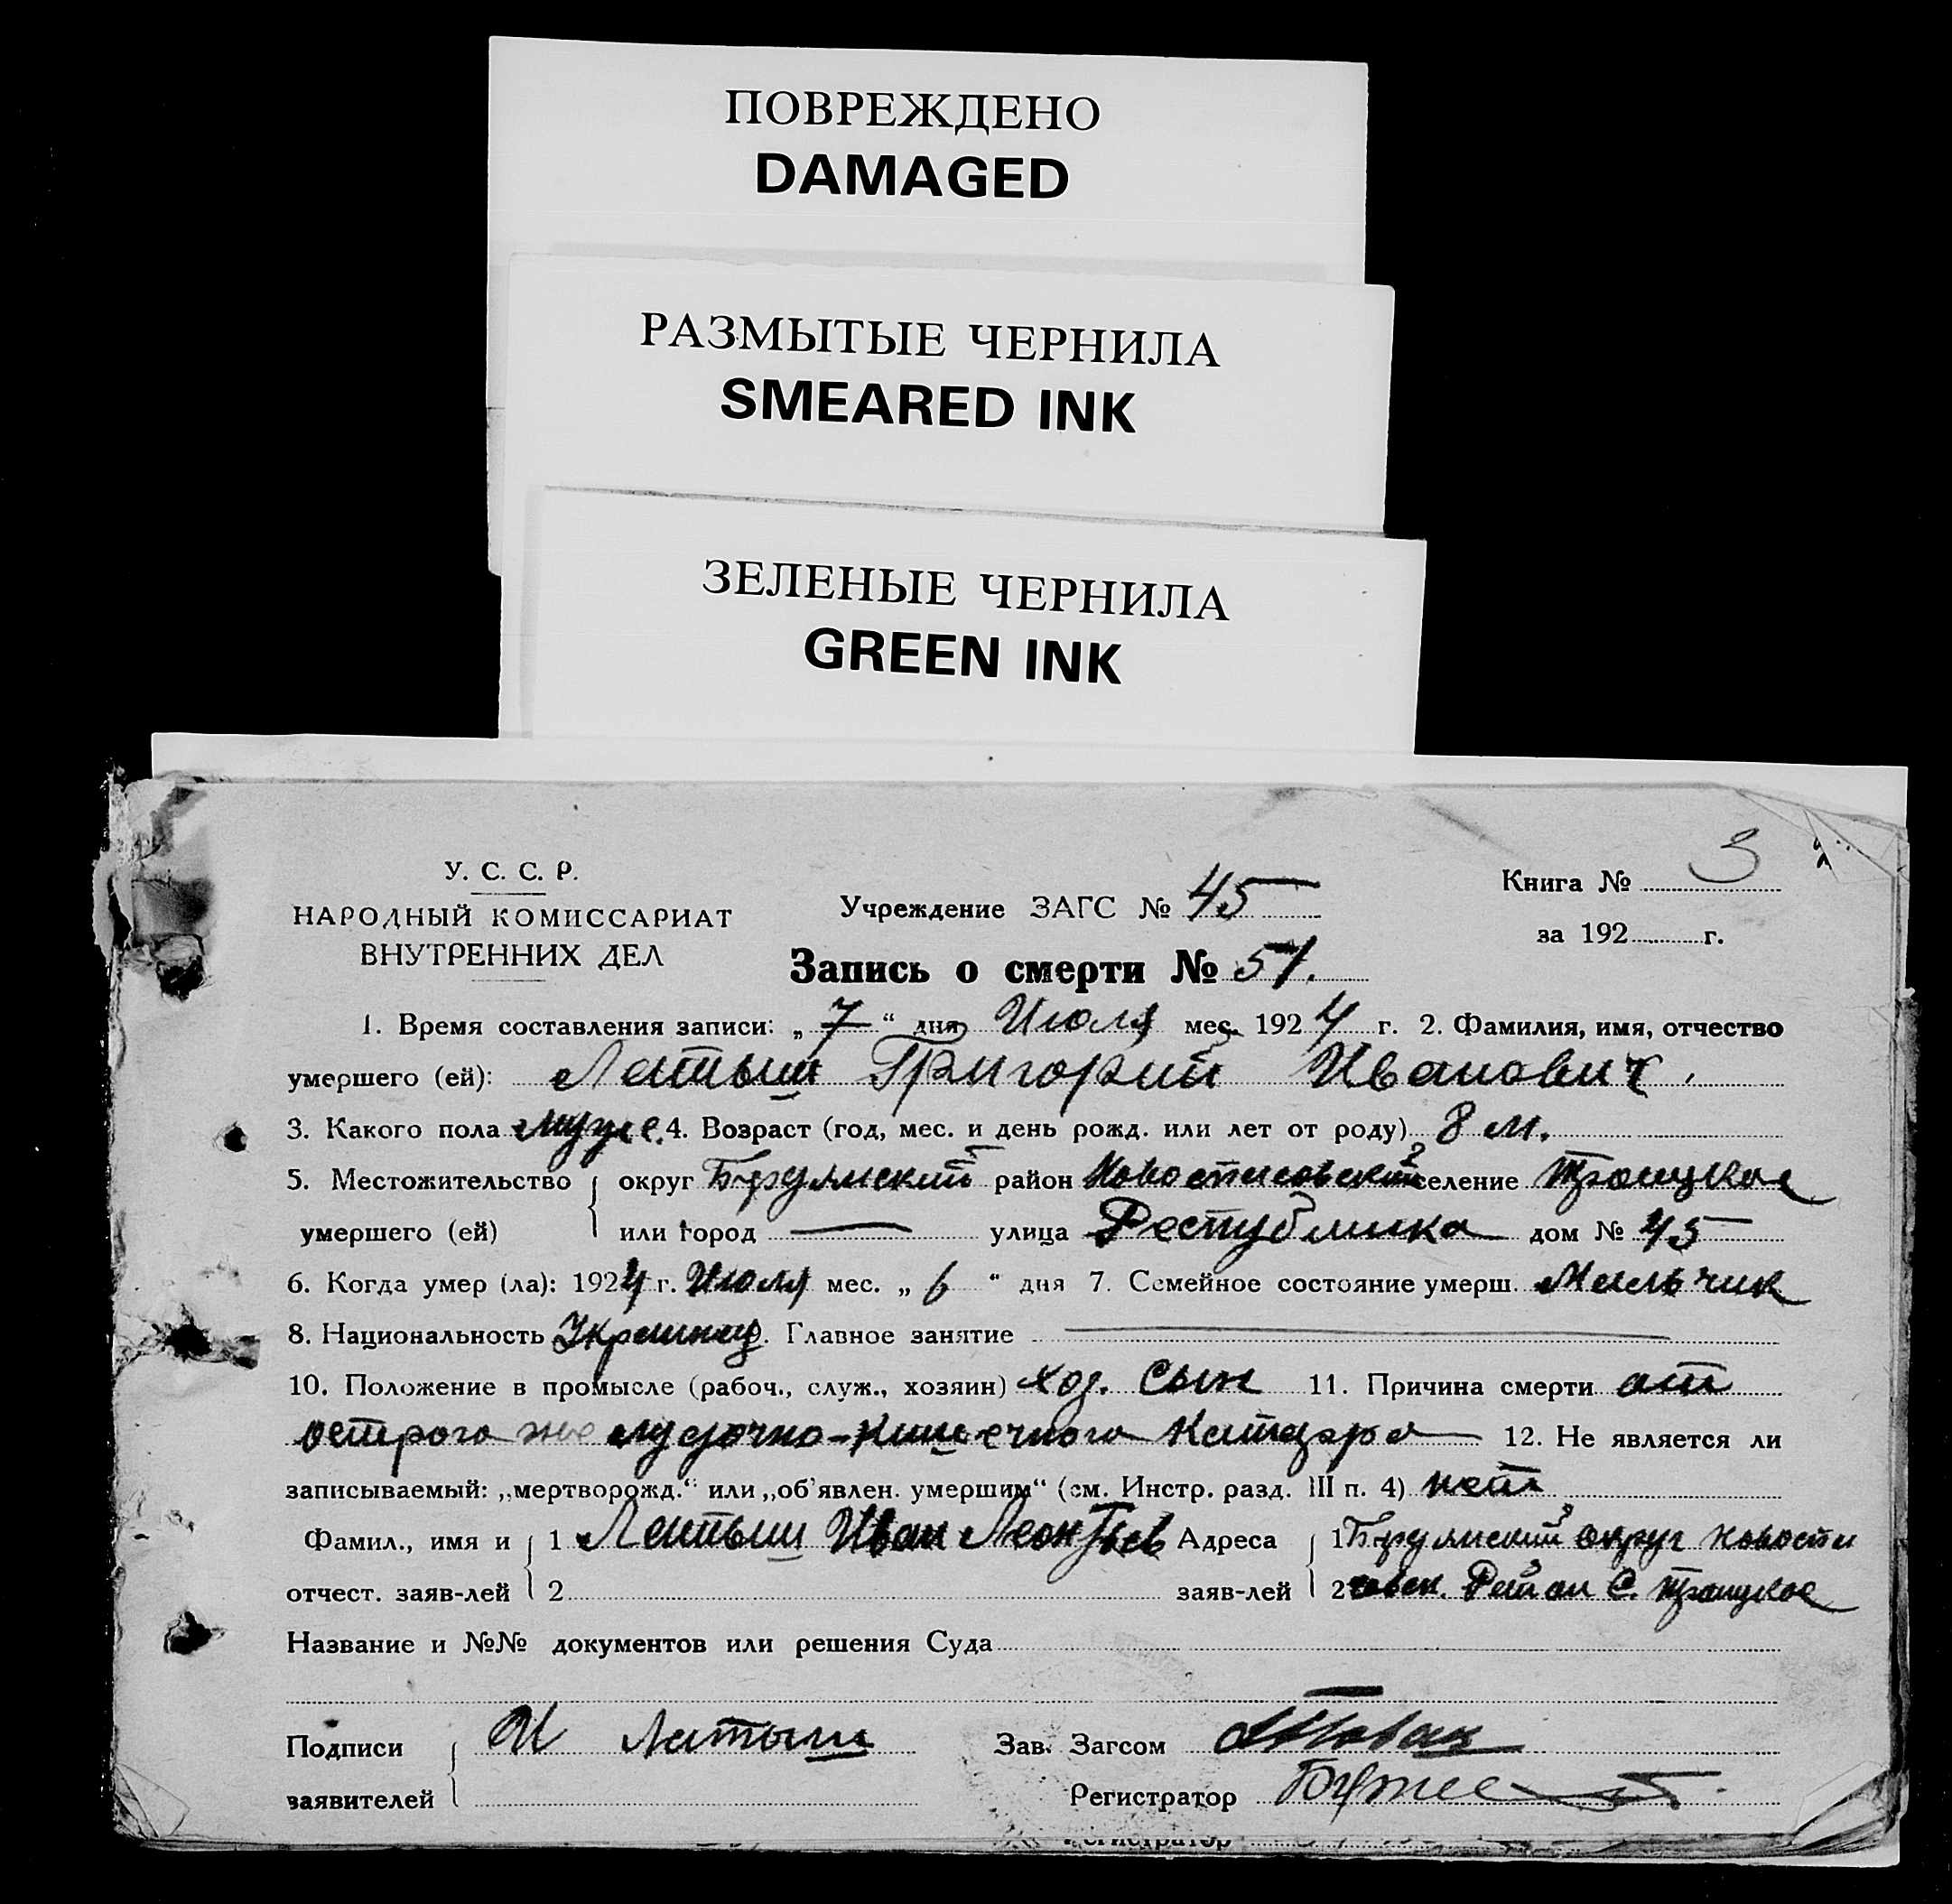 ПОВРЕЖДЕНО
DAMAGED
РАЗМЫТЫЕ ЧЕРНИЛА
SMEARED INK
ЗЕЛЕНЫЕ ЧЕРНИЛА
GREEN INK
У. С. С. Р.
НАРОДНЫЙ КОМИССАРИАТ
ВНУТРЕННИХ ДЕЛ
Учреждение ЗАГС № 45
Книга № 3
за 192 г.
Запись о смерти № 51.
1. Время составления записи: „ 7 “ дня Июля мес. 1924 г. 2. Фамилия, имя, отчество
умершего (ей): Латыш Григорий Иванович.
3. Какого пола муж. 4. Возраст (год, мес. и день рожд. или лет от роду) 8 м.
5. Местожительство округ Бердянский район Новоспасовский селение Троицкое
умершего (ей) или город — улица Республика дом № 45
6. Когда умер (ла): 1924 г. Июля мес. „ 6 “ дня 7. Семейное состояние умерш. Мальчик
8. Национальность Главное занятие —
10. Положение в промысле (рабоч., служ., хозяин) хоз. Сын 11. Причина смерти от
острого желудочно-кишечного Катарра 12. Не является ли
записываемый: „мертворожд.“ или „об'явлен. умершим“ (см. Инстр. разд. III п. 4) нет
Фамил., имя и 1 Латыш Иван Леонтьев Адреса 1 Бердянский округ новоспа
отчест. заяв-лей 2 заяв-лей 2 совск. Район С. Троицкое
Название и №№ документов или решения Суда
Подписи И Латыш Зав. Загсом
заявителей Регистратор
Регистратор